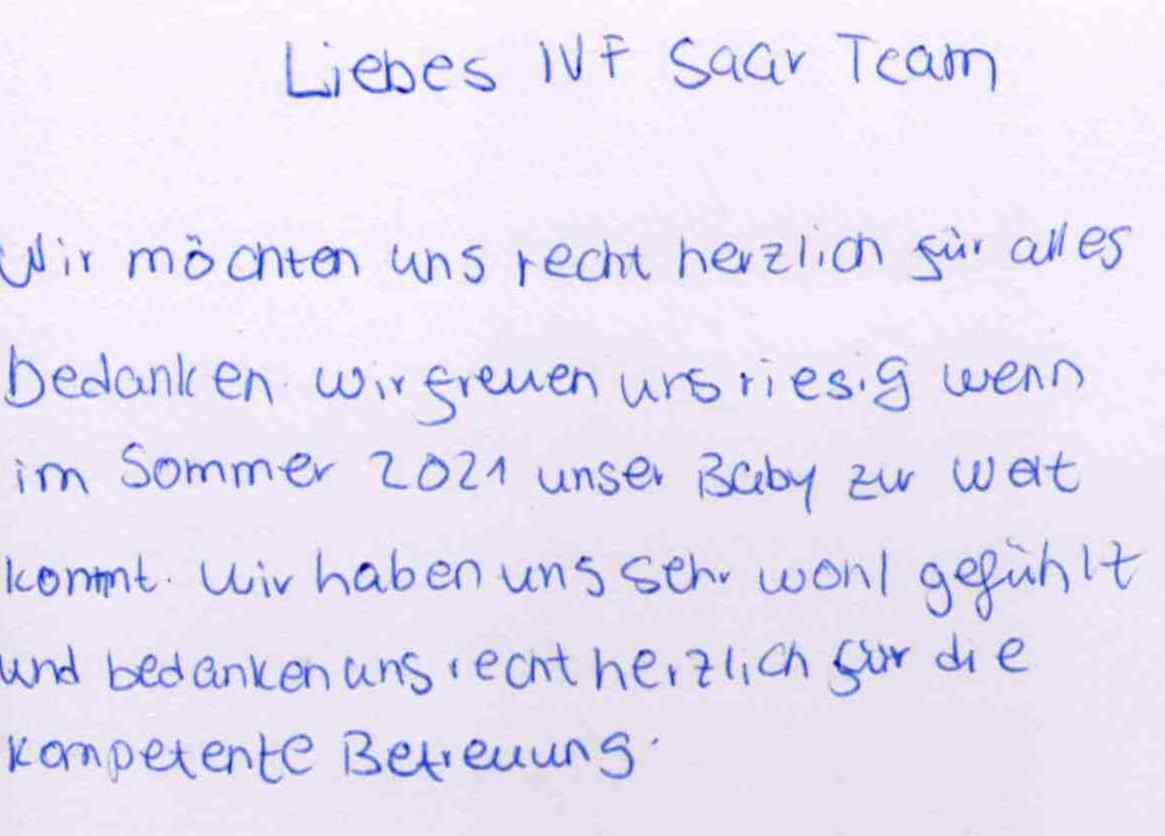 Liebes IVF Saar Team
Wir möchten uns recht herzlich für alles
bedanken. Wir freuen uns riesig wenn
im Sommer 2021 unser Baby zur Welt
kommt. Wir haben uns sehr wohl gefühlt
und bedanken uns recht herzlich für die
kompetente Betreuung.